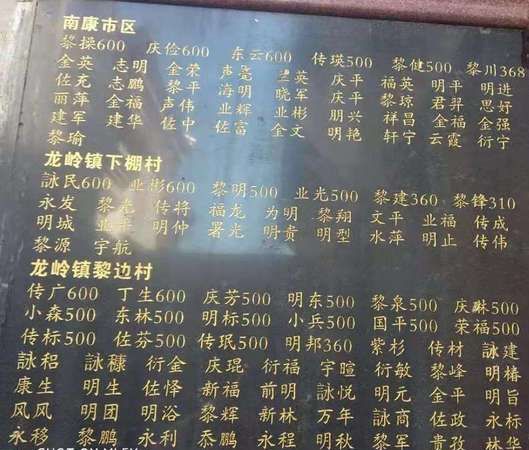 南康市区
黎操600 庆俭600 东云600 传瑛500 黎健500 黎川368
金英 志明 金荣 声毫 英 庆平 福英 明平 明进
佐充 志鹏 黎平 海明 晓军 庆平 黎琼 君羿 思好
丽萍 金福 声伟 业辉 业彬 朋兴 祥昌 金福 金强
建军 建华 佐中 佐富 金文 明艳 轩宁 云霞 衍宁
黎瑜
龙岭镇下棚村
詠民600 业彬600 黎明500 业光500 黎建360 黎锋310
永发 黎 传将 福龙 为明 黎翔 文平 业福 传成
明城 业平 明仲 署光 明贵 明型 水萍 明止 传伟
黎源 宇航
龙岭镇黎边村
传广600 丁生600 庆芳500 明东500 黎泉500 庆500
小森500 东林500 明标500 小兵500 国平500 荣福500
传标500 佐芬500 传珉500 明邦360 紫杉 传材 詠建
詠和 詠糠 衍金 庆琨 衍福 宇暄 衍敏 黎峰 明椿
康生 明生 佐怿 新福 前明 詠悦 明元 金平 明旨
风风 明团 明浴 黎辉 新林 万年 詠商 佐政 永标
永移 黎鹏 永利 鹏 永程 明秋 黎军 贵孜 林华
SHOT ON MI 6X